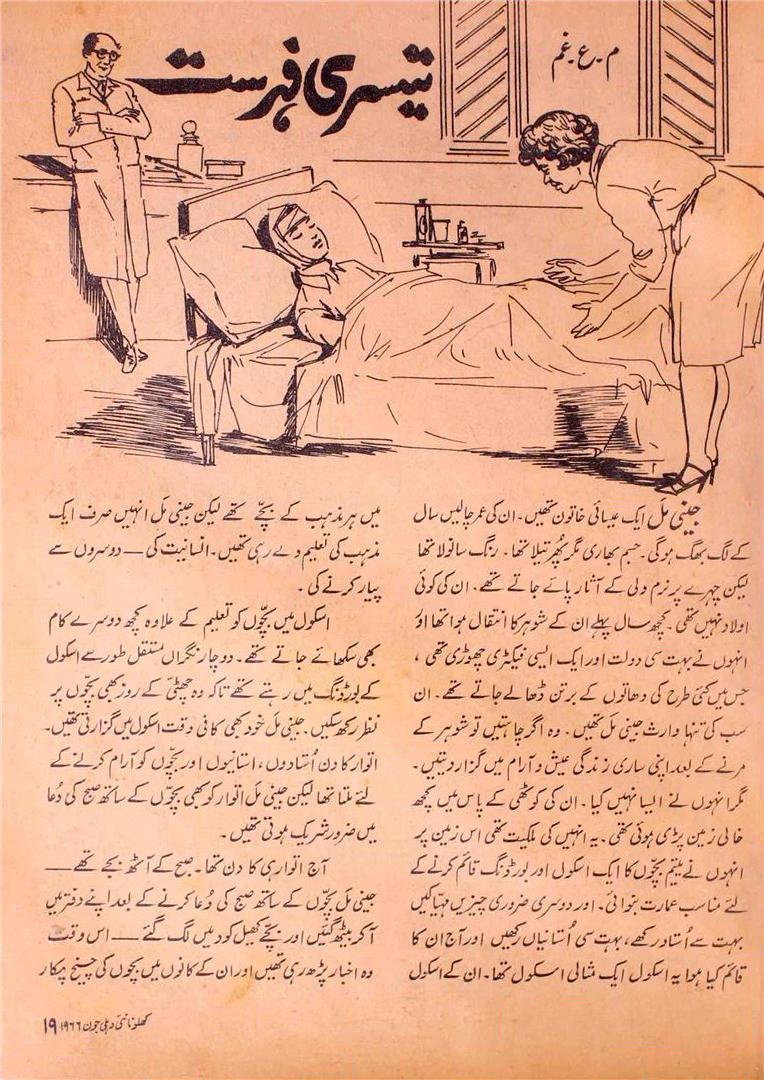 تیسری فہرست
م۔ع۔غم
جینی مل ایک عیسائی خاتون تھیں۔ ان کی عمر چالیس سال
کے لگ بھگ ہوگی۔ جسم بھاری مگر پُھرتیلا تھا۔ رنگ سانولا تھا
لیکن چہرے پر نرم دلی کے آثار پائے جاتے تھے۔ ان کی کوئی
اولاد نہیں تھی۔ کچھ سال پہلے ان کے شوہر کا انتقال ہوا تھا اور
انہوں نے بہت سی دولت اور ایک ایسی فیکٹری چھوڑی تھی،
جس میں کئی طرح کی دھاتوں کے برتن ڈھالے جاتے تھے۔ ان
سب کی تنہا وارث جینی مل تھیں۔ وہ اگر چاہتیں تو شوہر کے
مرنے کے بعد اپنی ساری زندگی عیش و آرام میں گزار دیتیں۔
مگر انہوں نے ایسا نہیں کیا۔ ان کی کوٹھی کے پاس میں کچھ
خالی زمین پڑی ہوئی تھی۔ یہ انہیں کی ملکیت تھی اس زمین پر
انہوں نے یتیم بچّوں کا ایک اسکول اور بورڈنگ قائم کرنے کے
لئے مناسب عمارت بنوائی۔ اور دوسری ضروری چیزیں مہیّا کیں
بہت سے اُستاد رکھے، بہت سی اُستانیاں رکھیں اور آج ان کا
قائم کیا ہوا یہ اسکول ایک مثالی اسکول تھا۔ ان کے اسکول
میں ہر مذہب کے بچّے تھے لیکن جینی مل انہیں صرف ایک
مذہب کی تعلیم دے رہی تھیں۔ انسانیت کی — دوسروں سے
پیار کرنے کی۔
اسکول میں بچّوں کو تعلیم کے علاوہ کچھ دوسرے کام
بھی سکھائے جاتے تھے۔ دو چار نگراں مستقل طور سے اسکول
کے بورڈنگ میں رہتے تھے تاکہ وہ چھٹی کے روز بھی بچّوں پر
نظر رکھ سکیں۔ جینی مل خود بھی کافی وقت اسکول میں گزارتی تھیں۔
اتوار کا دن اُستادوں، استانیوں اور بچّوں کو آرام کرنے کے
لئے ملتا تھا لیکن جینی مل اتوار کو بھی بچوّں کے ساتھ صبح کی دُعا
میں ضرور شریک ہوتی تھیں۔
آج اتوار ہی کا دن تھا۔ صبح کے آٹھ بجے تھے —
جینی مل بچّوں کے ساتھ صبح کی دُعا کرنے کے بعد اپنے دفتر میں
آ کر بیٹھ گئیں اور بچّے کھیل کود میں لگ گئے — اس وقت
وہ اخبار پڑھ رہی تھیں اور ان کے کانوں میں بچوں کی چیخ پکار
کھلونا نئی دہلی جون ۱۹۶۶ ۱۹